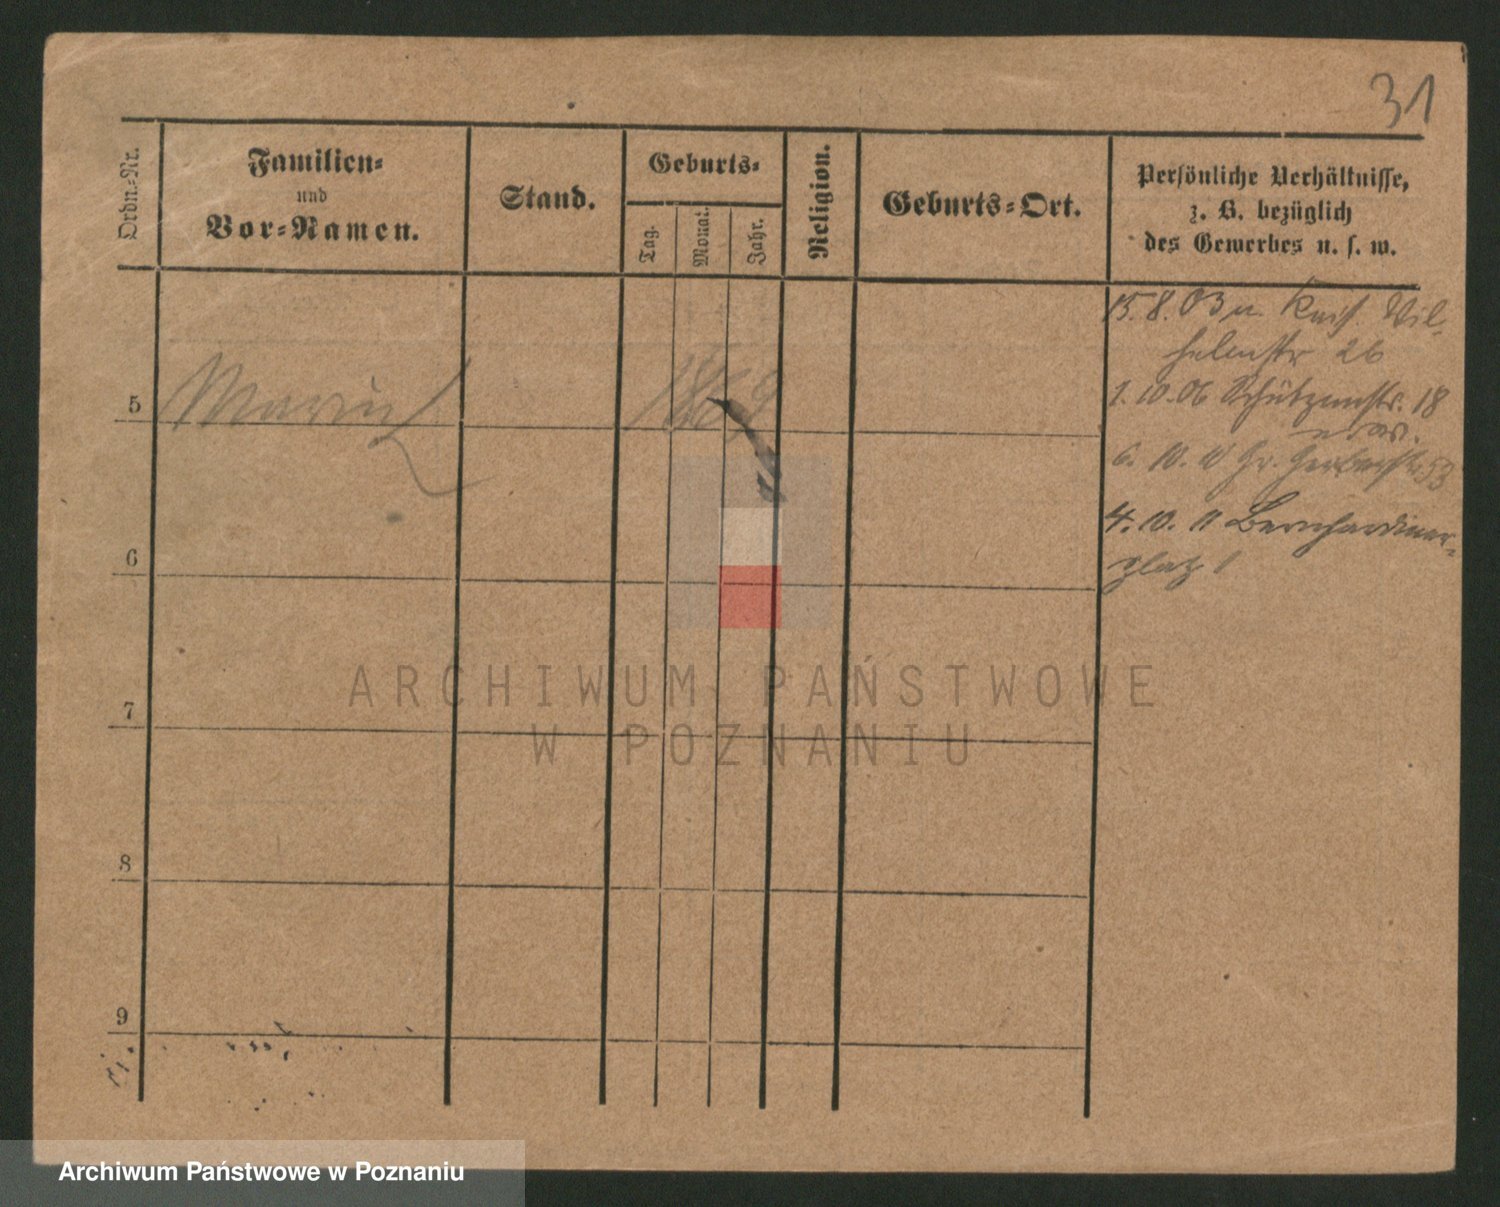 31
Ordn.-Nr.
Familien-
und
Vor-Namen.
Stand.
Geburts-
Tag.
Monat.
Jahr.
Religion.
Geburts-Ort.
Persönliche Verhältnisse,
z. B. bezüglich
des Gewerbes u. s. w.
15. 8. 03 n. Kais. Wil-
helmstr 26
1. 10. 06 Schützenstr. 18
5
1869
6. 10. Gr. Gerberstr. 53
4. 10. 11 Bernhardiner-
platz 1
6
7
8
9
ARCHIWUM PAŃSTWOWE
W POZNANIU
Archiwum Państwowe w Poznaniu